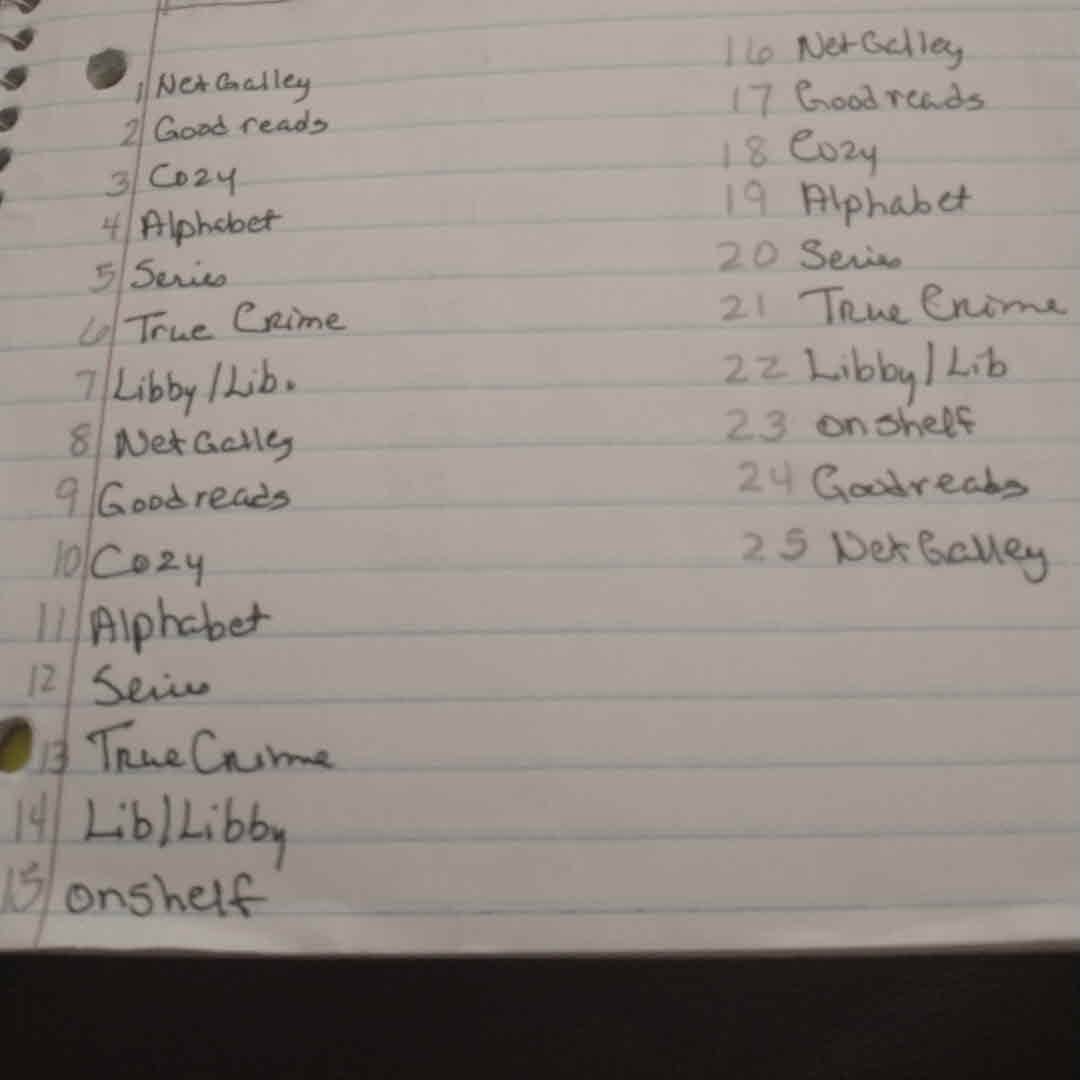 1 NetGalley
2 Good reads
3 Cozy
4 Alphabet
5 Series
6 True Crime
7 Libby/Lib.
8 NetGalley
9 Goodreads
10 Cozy
11 Alphabet
12 Series
13 True Crime
14 Lib/Libby
15 onshelf
16 NetGalley
17 Goodreads
18 Cozy
19 Alphabet
20 Series
21 True Crime
22 Libby/Lib
23 onshelf
24 Goodreads
25 NetGalley